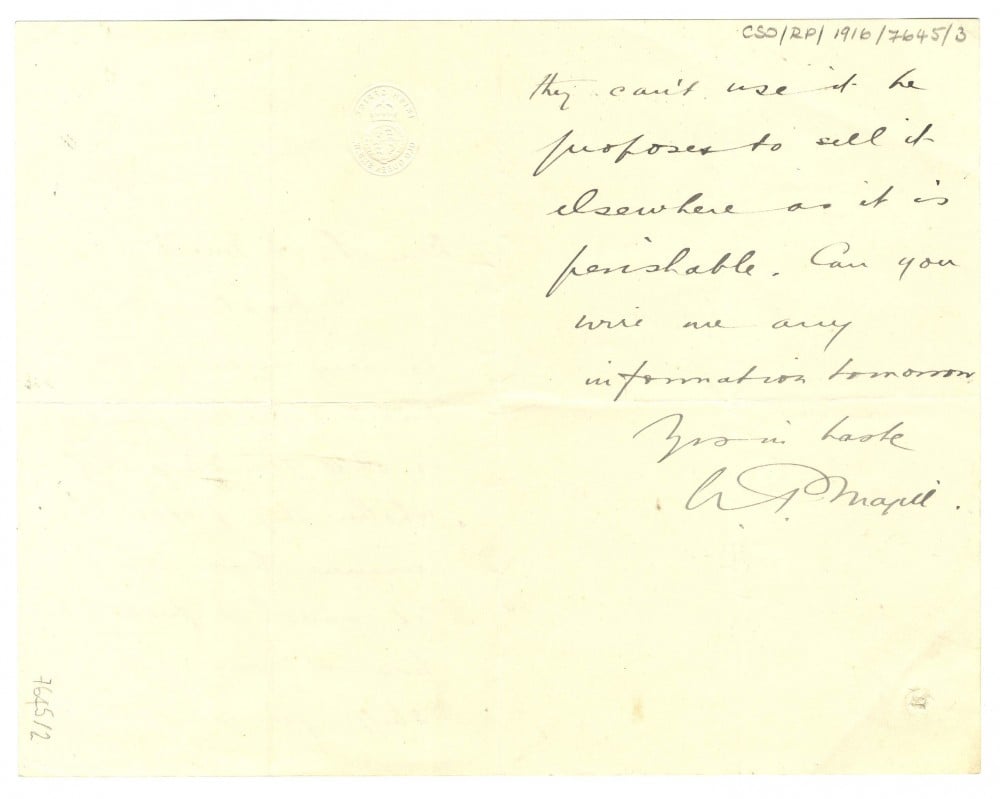 CSO/RP/1916/7645/3
they can't use it he
proposes to sell it
elsewhere as it is
perishable. Can you
wire me any
information tomorrow
Yrs in haste
7645/2